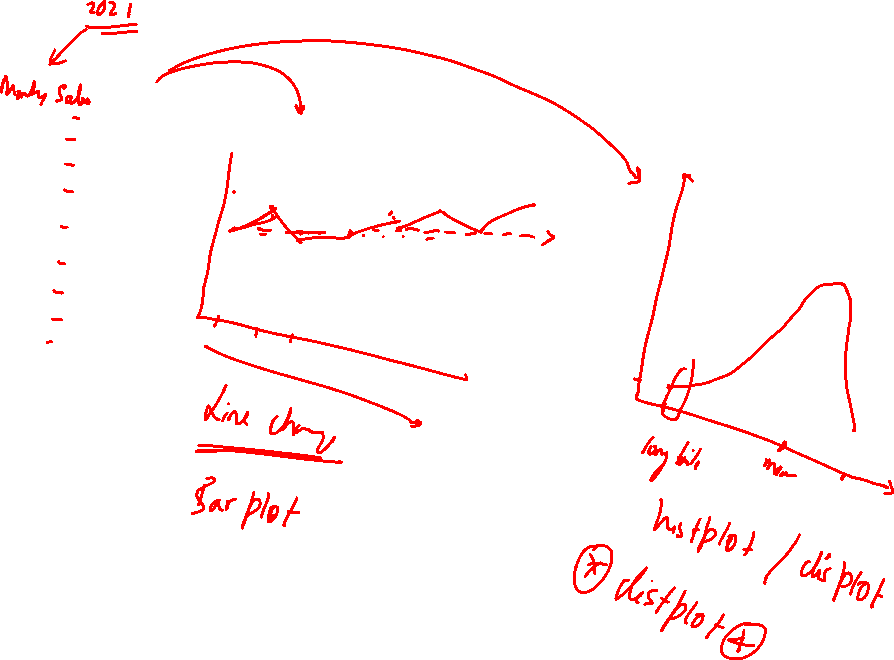 2021
Monthly Sales
Line chart
Bar plot
long tail
mean
histplot / displot
* distplot *